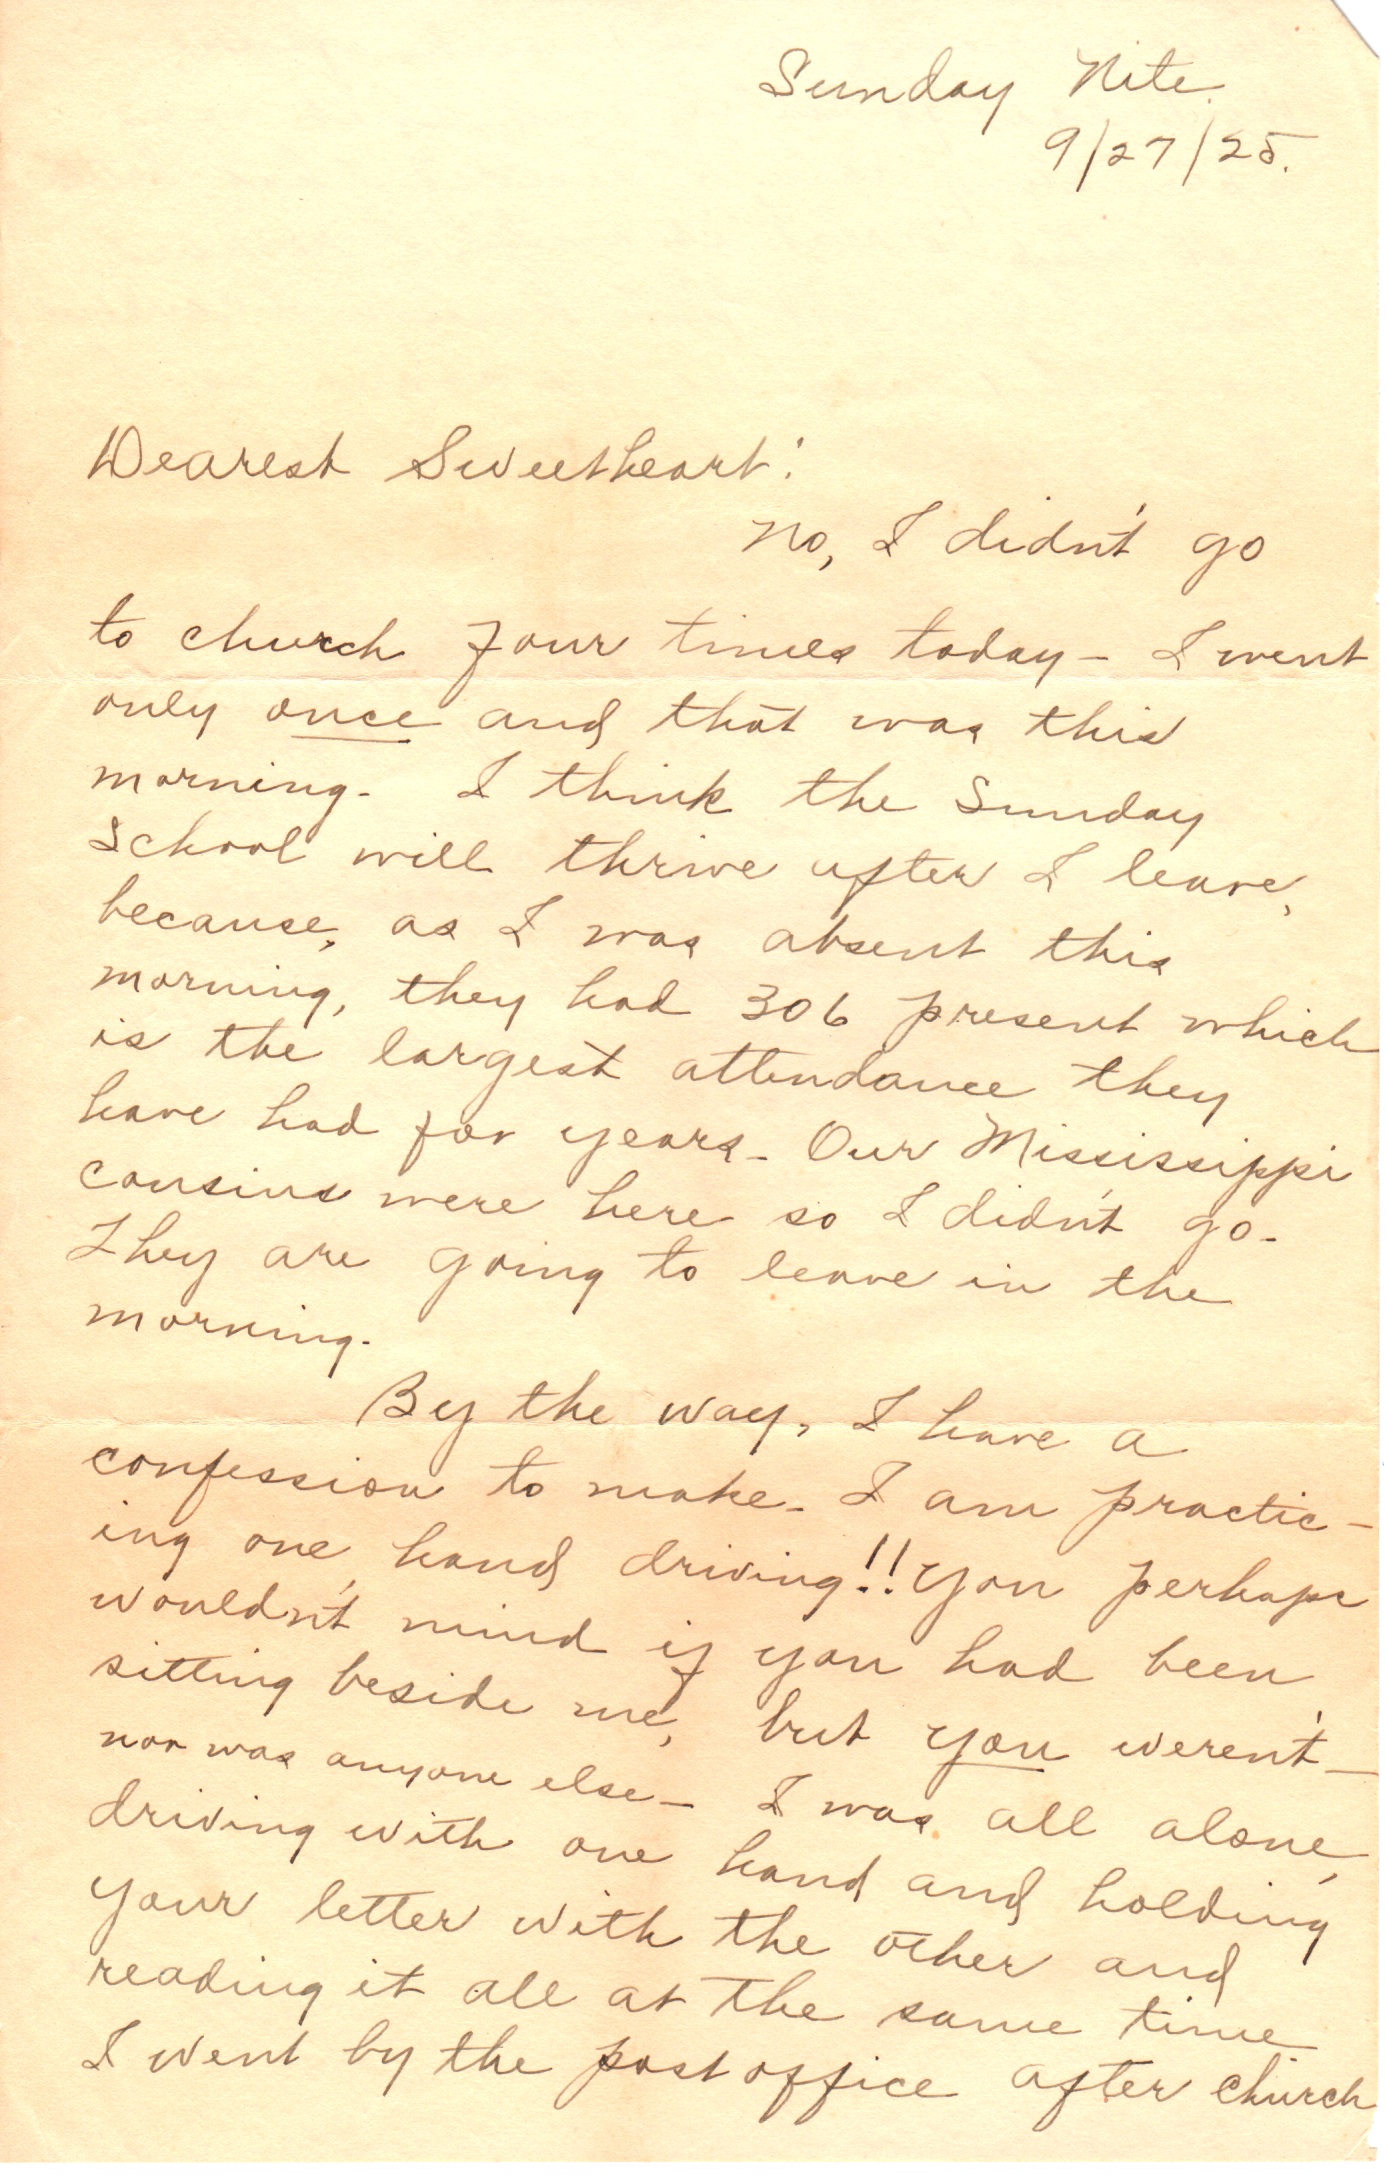 Sunday Nite.
9/27/25.
Dearest Sweetheart:
No, I didn't go
to church four times today - I went
only once and that was this
morning. I think the Sunday
School will thrive after I leave,
because, as I was absent this
morning, they had 306 present which
is the largest attendance they
have had for years - Our Mississippi
cousins were here so I didn't go -
They are going to leave in the
morning.
By the way, I have a
confession to make - I am practic-
ing one hand driving!! You perhaps
wouldn't mind if you had been
sitting beside me, but you weren't -
nor was anyone else - I was all alone,
driving with one hand and holding
your letter with the other and
reading it all at the same time
I went by the post office after church